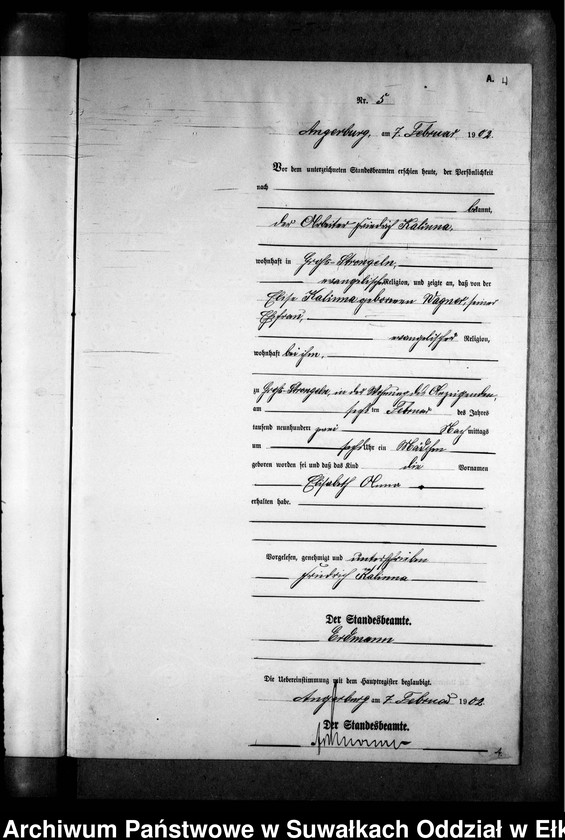 A. 4
Nr. 5
Angerburg, am 7. Februar 1902.
Vor dem unterzeichneten Standesbeamten erschien heute, der Persönlichkeit
nach
bekannt,
der Arbeiter Friedrich Kalinna,
wohnhaft in Groß-Strengeln,
evangelischer Religion, und zeigte an, daß von der
Elise Kalinna geborenen Wagner, seiner
Ehefrau,
evangelischer Religion,
wohnhaft bei ihm,
zu Groß-Strengeln, in der Wohnung des Anzeigenden,
am sechsten Februar des Jahres
tausend neunhundert zwei Nachmittags
um sechs Uhr ein Mädchen
geboren worden sei und daß das Kind die Vornamen
Elisabeth Anna
erhalten habe.
Vorgelesen, genehmigt und unterschrieben
Friedrich Kalinna
Der Standesbeamte.
Erdmann
Die Uebereinstimmung mit dem Hauptregister beglaubigt.
Angerburg am 7. Februar 1902
Der Standesbeamte.
Erdmann
Archiwum Państwowe w Suwałkach Oddział w Ełk